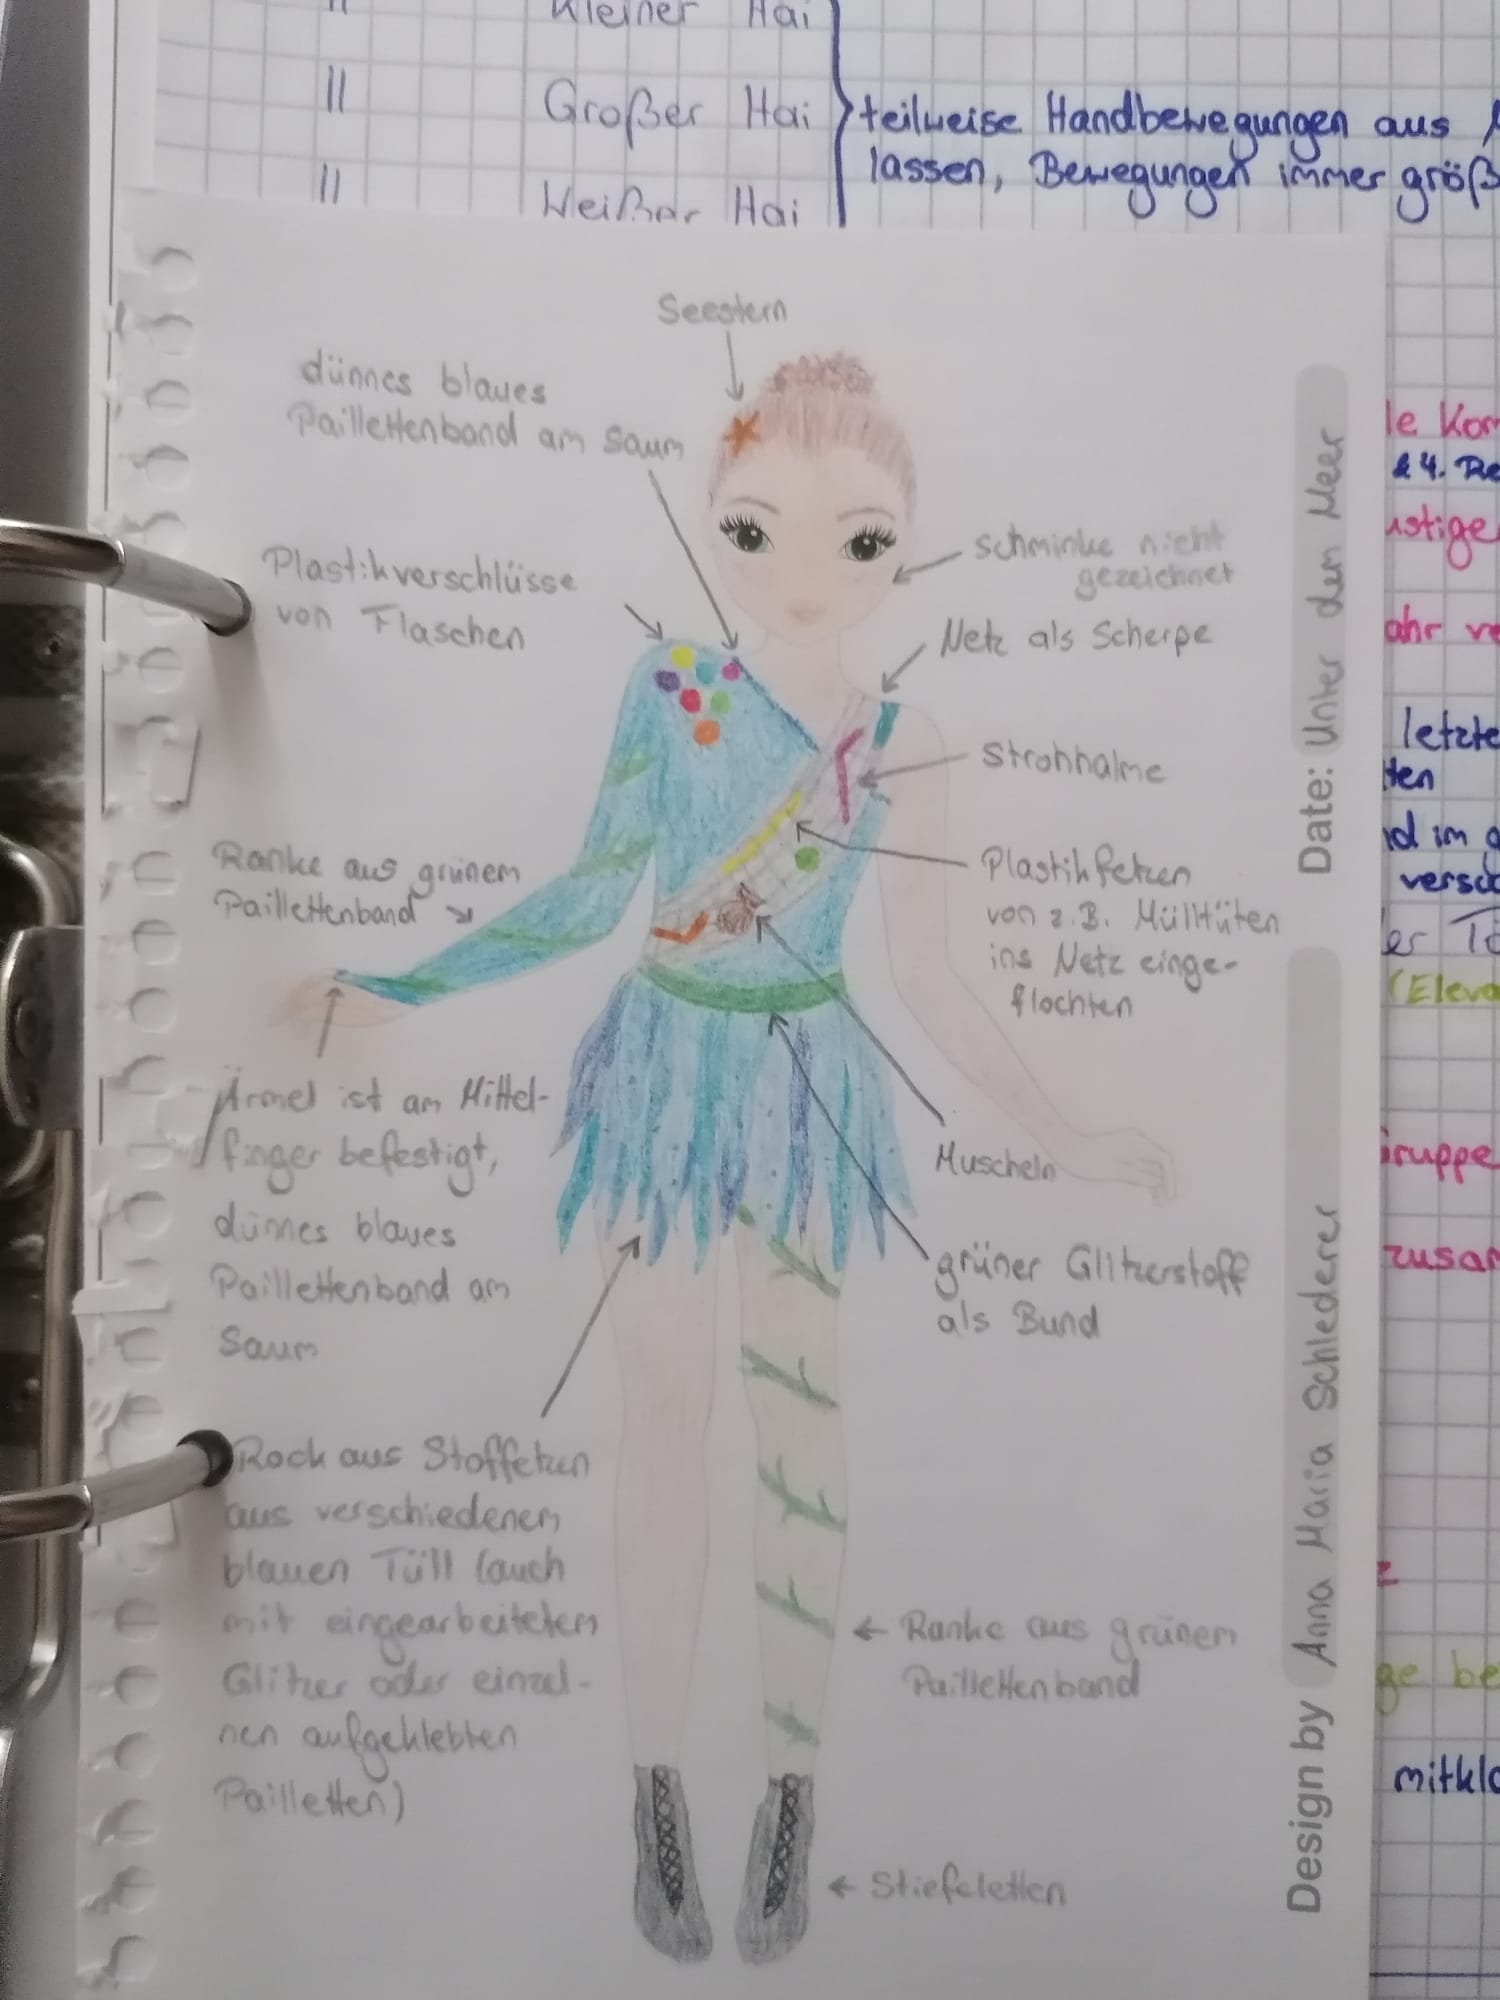 Kleiner Hai
11 Großer Hai
11 Weißer Hai
teilweise Handbewegungen aus
lassen, Bewegungen immer größ
Seestern
dünnes blaues
Paillettenband am Saum
Plastikverschlüsse
von Flaschen
Schminke nicht
gezeichnet
Netz als Scherpe
Strohhalme
Ranke aus grünem
Paillettenband
Plastikfetzen
von z.B. Mülltüten
ins Netz einge-
flochten
Ärmel ist am Mittel-
finger befestigt,
dünnes blaues
Paillettenband am
Saum
Muscheln
grüner Glitzerstoff
als Bund
Rock aus Stoffetzen
aus verschiedenem
blauen Tüll (auch
mit eingearbeitetem
Glitzer oder einzel-
nen aufgeklebten
Pailletten)
Ranke aus grünem
Paillettenband
Stiefeletten
Date: Unter dem Meer
Design by Anna Maria Schlederer
le Kom
& 4. Re
ustige
ahr ve
letzte
ten
nd im g
versc
er Tö
(Eleva
Gruppe
zusam
ge be
mitkla